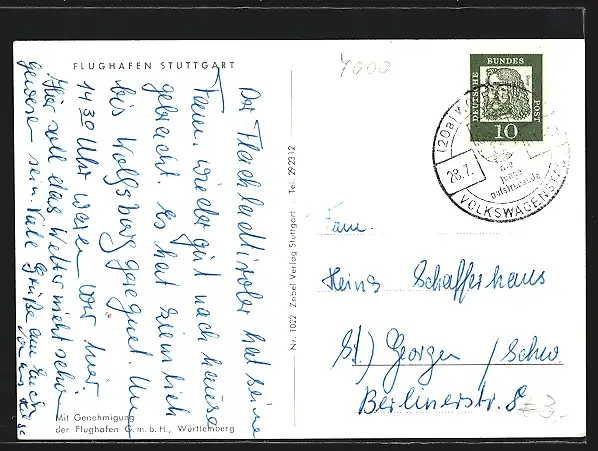 FLUGHAFEN STUTTGART
7000
DEUTSCHE BUNDES POST
10
(20a)
28.7.
VOLKSWAGENSTADT
Der Flachlandtiroler hat seine
Fam. wieder gut nach hause
gebracht. Es hat ziemlich
bis Wolfsburg geregnet. Um
14 30 Uhr waren wir hier
Hier soll das Wetter nicht schön
gewesen sein. Viele Grüße an Euch
Mit Genehmigung
der Flughafen G. m. b. H., Württemberg
Nr. 1022 Zobel-Verlag Stuttgart Tel. 29 23 12
Fam.
Heinz Schafferhaus
St.) Georgen / Schw.
Berlinerstr. 8